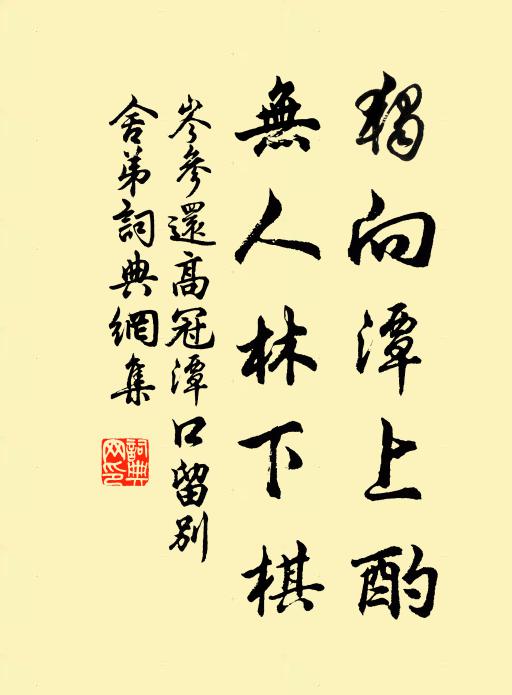 獨向潭上酌
無人林下棋
岑參還高冠潭口留別
舍弟詞典網集
詞典網印